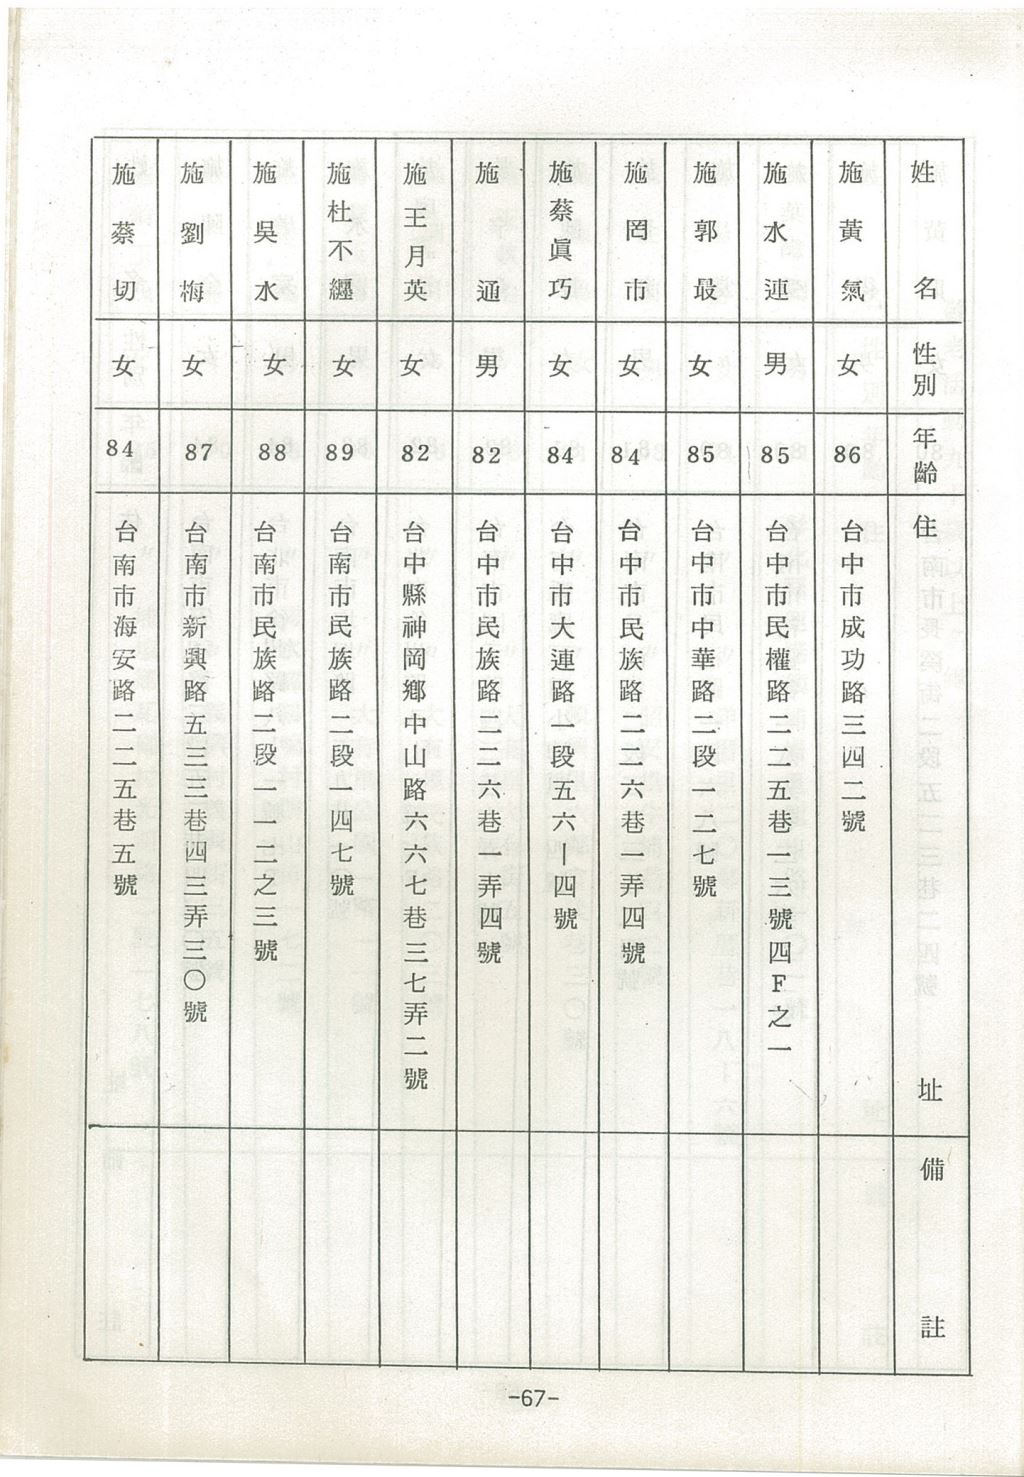 姓名 性別 年齡 住址 備註
施黃氣 女 86 台中市成功路三四二號
施水連 男 85 台中市民權路二二五巷一三號四F之一
施郭最 女 85 台中市中華路二段一二七號
施罔市 女 84 台中市民族路二二六巷一弄四號
施蔡眞巧 女 84 台中市大連路一段五六|四號
施通 男 82 台中市民族路二二六巷一弄四號
施王月英 女 82 台中縣神岡鄉中山路六六七巷三七弄二號
施杜不纒 女 89 台南市民族路二段一四七號
施吳水 女 88 台南市民族路二段一一二之三號
施劉梅 女 87 台南市新興路五三三巷四三弄三〇號
施蔡切 女 84 台南市海安路二二五巷五號
-67-